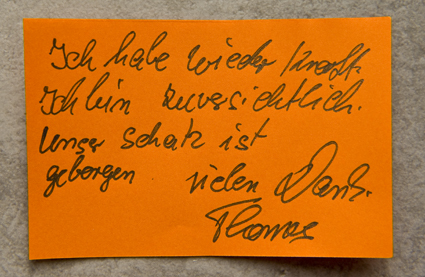 Ich habe wieder Kraft.
Ich bin zuversichtlich.
Unser Schatz ist
geborgen vielen Dank.
Thomas